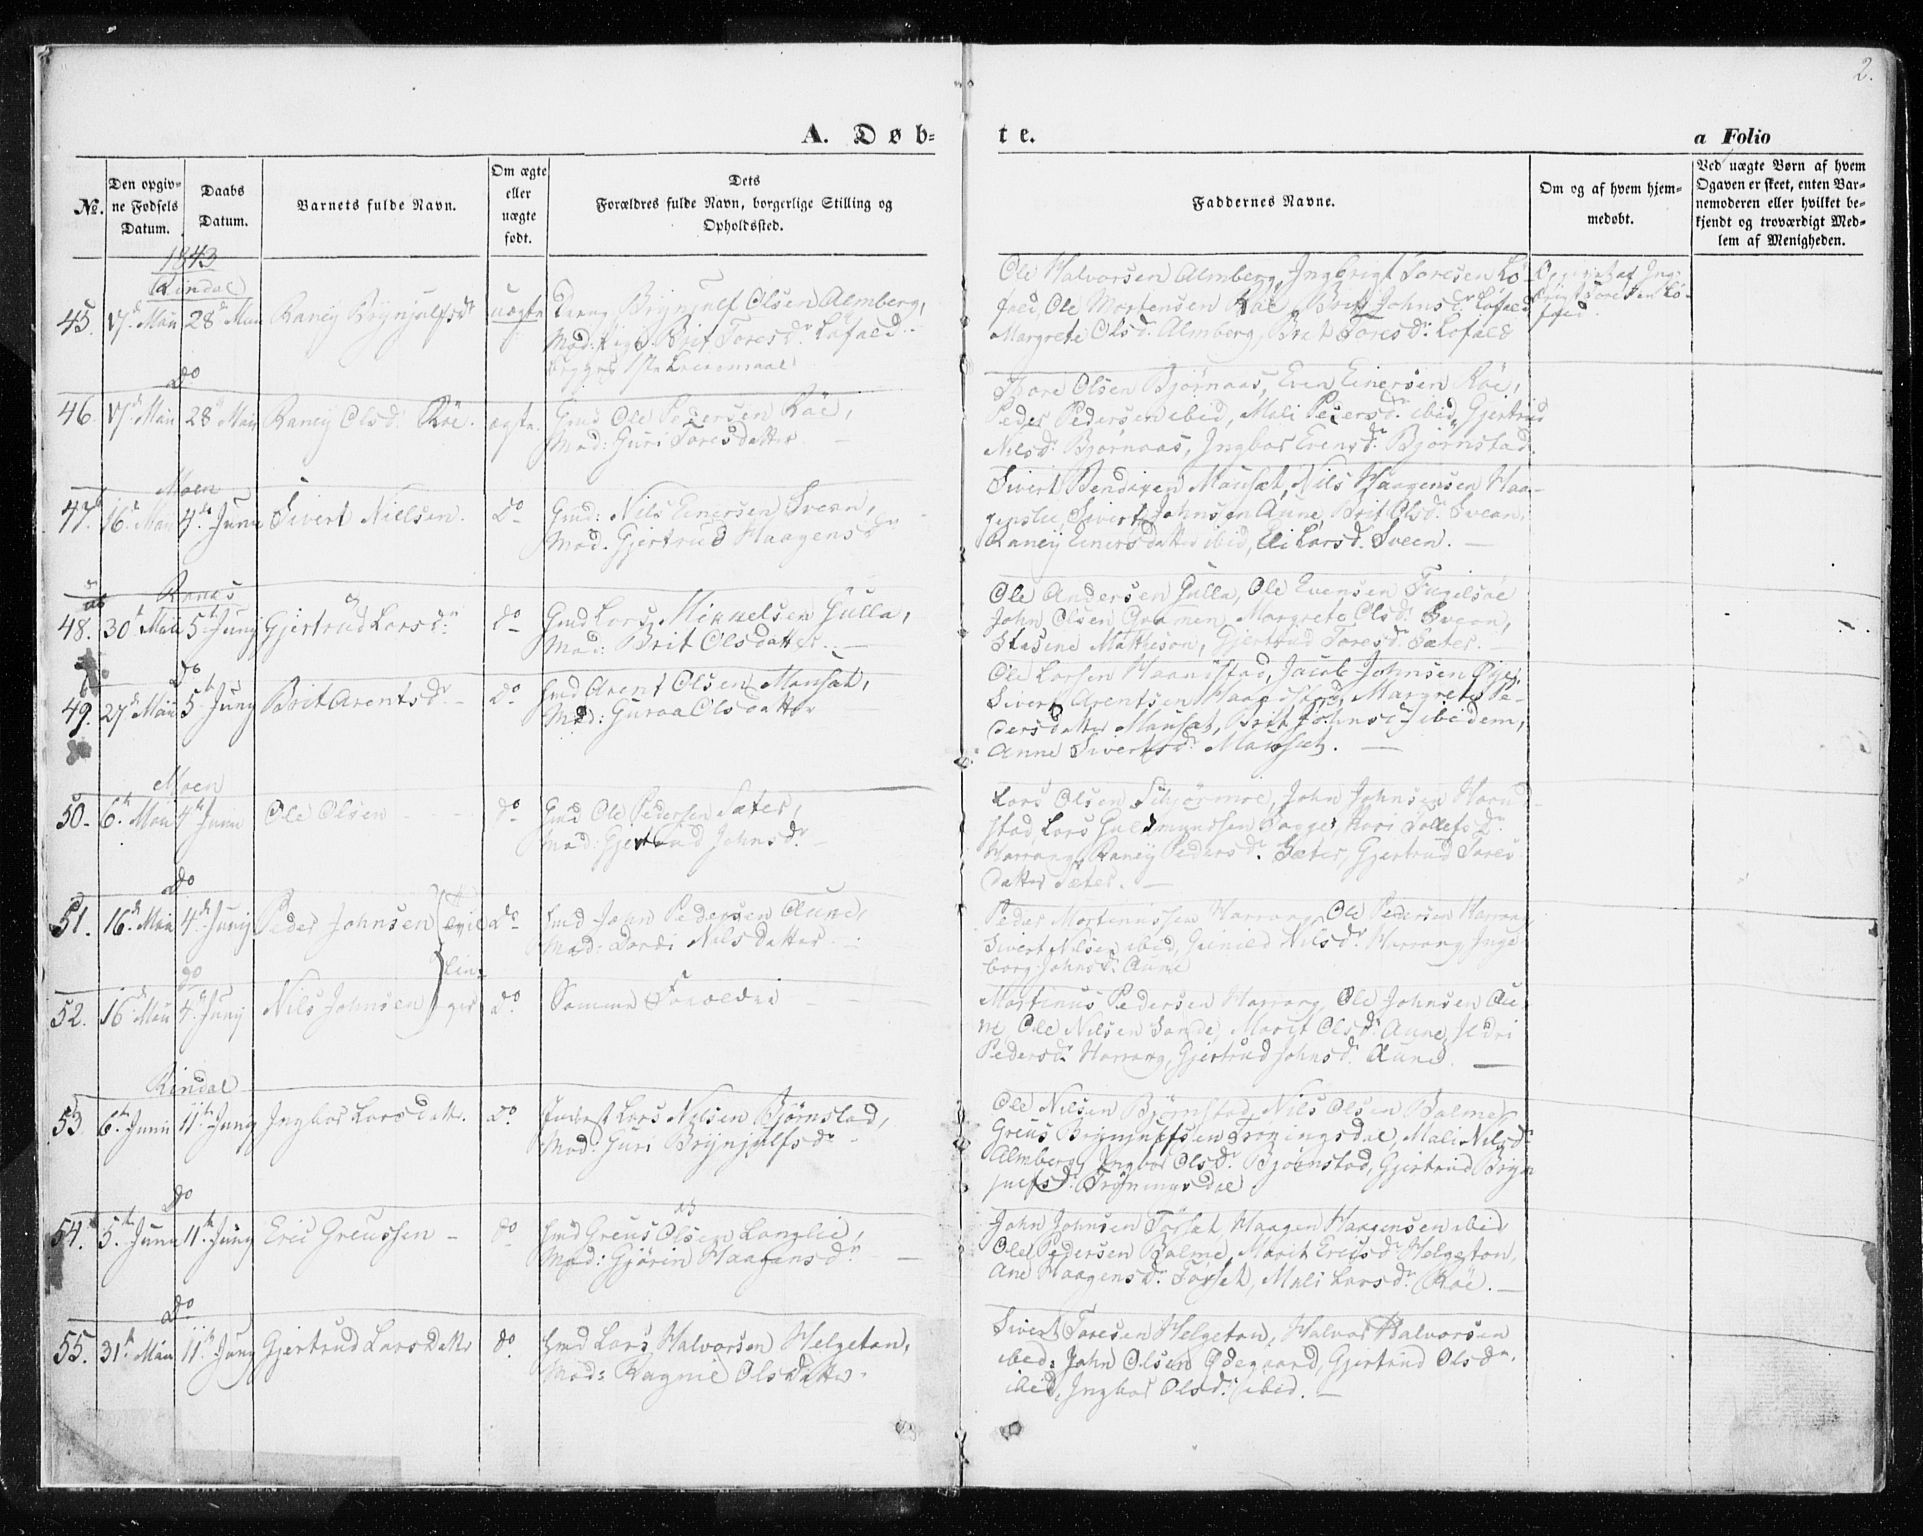 2.
A. Døb-
te.
a Folio
No.
Den opgiv-
ne Fødsels
Datum.
Daabs
Datum.
Barnets fulde Navn.
Om ægte
eller
uægte
født.
Dets
Forældres fulde Navn, borgerlige Stilling og
Opholdssted.
Faddernes Navne.
Om og af hvem hjem-
medøbt.
Ved uægte Børn af hvem
Opgaven er skeet, enten Bar-
nemoderen eller hvilket be-
kjendt og troværdigt Med-
lem af Menigheden.
1843
Rindal
45. 17 Maii 28 Maii Raney Brynjulfsdr uægte Brynjulf Olsen Almberg,
Mod: Pige Brit Toresdr Løfald
Ole Halvorsen Almberg, Ingbrigt Toresen Lø-
fald Ole Mortensen Röe, Brit Johnsdr Løfald
Margrete Olsdr Almberg, Brit Toresdr Løfald
Do
46. 17 Maii 28 Maii Raney Olsdr Röe. ægte. Gmd Ole Pedersen Röe,
Mod: Guri Toresdatter
Tore Olsen Bjørnaas, Even Einersen Röe,
Peder Pedersen ibid, Mali Pedersdr ibid, Gjertrud
Nilsdr Bjørnaas, Ingbor Evensdr Bjørnstad.
Moen
47. 16 Maii 4 Junii Sivert Nielsen. Do Gmd: Nils Einersen Svean,
Mod. Gjertrud Haagensdr
Sivert Bendixen Mausæt, Nils Haagensen Haa-
genslie, Sivert Johnsen Aune, Brit Olsdr Svean,
Raney Einersdatter ibid, Eli Larsd. Sveen.
Ranæs
48. 30 Maii 5 Junij Gjertrud Larsdr do Gmd Lars Mikkelsen Gulla,
Mod: Brit Olsdatter
Ole Andersen Gulla, Ole Evensen Fugelsøe
John Olsen, Margrete Olsdr Svean,
Stasine Mathison, Gjertrud Toresdr Sæter.
Do
49. 27 Maii 5 Junij Brit Arentsdr Do Gmd Arent Olsen Mausæt,
Mod: Guroa Olsdatter
Ole Larsen Haandstad, Jacob Johnsen Øye,
Sivert Arentsen Haandstad, Margrete Pe-
dersdatter Mausæt, Brit Johnsd ibidem,
Anne Sivertsdr Mausæt.
Moen
50. 6 Maii 4 Junii Ole Olsen do Gmd Ole Pedersen Sæter,
Mod: Gjertrud Johnsdr
Lars Olsen Schjørmoe, John Johnsen Haand-
stad Lars Guldmundsen, Kari Tollefsdr
Harrang, Raney Pedersdr Sæter, Gjertrud Tores-
datter Sæter.
Do
51. 16 Maii 4 Junij Peder Johnsen Do Gmd John Pedersen Aune,
Mod: Dordi Nilsdatter
Peder Mortinussen Harrang, Ole Pedersen Harrang
Sivert Nilsen ibid, Gunild Nilsdr Harrang, Inge-
borg Johnsdr Aune
do
52. 16 Maii 4 Junij Nils Johnsen do. Samme Foreldre
Mortinus Pedersen Harrang, Ole Johnsen Au-
ne, Ole Nilsen Sande, Marit Olsdr Aune, Sidri
Pedersdr Harrang, Gjertrud Johnsdr Aune
Rindal
53 6 Junii 11 Junij Ingbor Larsdattr. Do Inderst Lars Nilsen Bjørnstad,
Mod: Guri Brynjulfsdr
Ole Nilsen Bjørnstad, Nils Olsen Bolme,
Greus Brynjulfsen, Mali Nilsdr
Almberg, Ingbor Olsdr Bjørnstad, Gjertrud Bryn-
julfsdr
Do
54. 5 Junii 11 Junij Eric Greussen do Gmd Greus Olsen Langlie,
Mod: Gjørin Haagensdr
John Johnsen Tørset, Haagen Haagensen ibid
Ole Pedersen Bolme, Marit Ericsdr Helgeton,
Ane Haagensdr Tørset, Mali Larsdr Röe.
Do
55. 31 Maii 11 Junij Gjertrud Larsdattr do. Gmd Lars Halvorsen Helgeton,
Mod: Ragnil Olsdatter
Sivert Toresen Helgeton, Halvor Halvorsen
ibid: John Olsen Ødegaard, Gjertrud Olsdr
ibid, Ingbor Olsdr ibid.